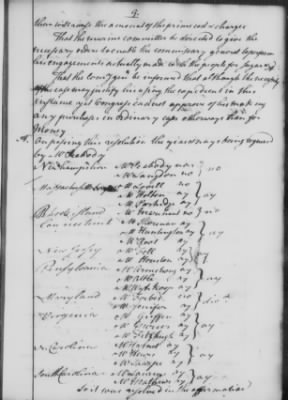 than to ... the amount of the prime cost & charges
That the ... committee be directed to give the
necessary orders to enable the commissary general to perform
his engagements actually made with the people for sugar &
That the ... be informed that although the exigency
of the case may justify his using the expedient in this
instance yet Congress cannot approve of his making
any purchase in Ordinary cases otherways than for
Money
On passing this resolution the yeas & nays being required
by Mr Peabody
New hampshire Mr Peabody no } no
Mr Langdon no
Massachusetts bay Mr Lovell no } ay
Mr Holten ay
Mr Partridge ay
Rhode Island Mr Marchant no } no
Connecticut Mr Sherman ay } ay
Mr Huntington ay
Mr Root ay
New Jersey Mr Fell ay } ay
Mr Houston ay
Pensylvania Mr Armstrong ay } ay
Mr Atlee ay
Mr Wynkoop ay
Maryland Mr Forbes no } divd
Mr Jenifer ay
Virginia Mr Griffin ay } ay
Mr Fitzhugh ay
N Carolina Mr Harnet ay } ay
Mr Hewes ay
Mr Sharpe ay
South Carolina Mr Laurens ay } ay
Mr Mathews ay
So it was resolved in the affirmative